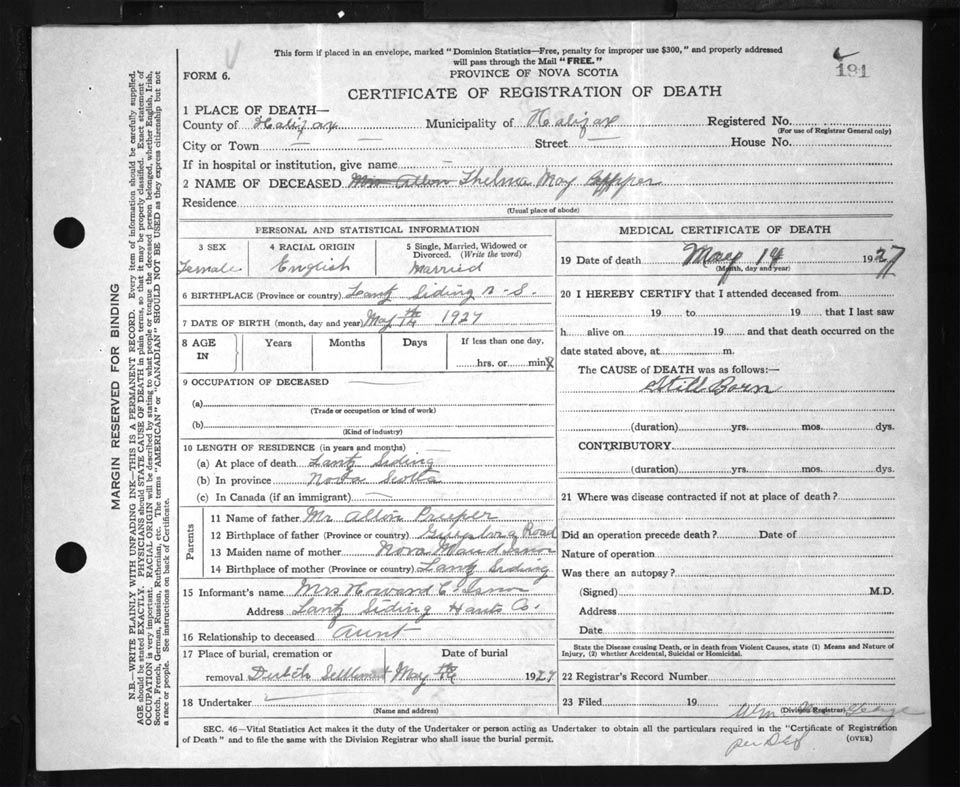 This form if placed in an envelope, marked "Dominion Statistics—Free, penalty for improper use $300," and properly addressed
will pass through the Mail "FREE."
191
FORM 6.
PROVINCE OF NOVA SCOTIA
CERTIFICATE OF REGISTRATION OF DEATH
1 PLACE OF DEATH—
County of Halifax Municipality of Halifax Registered No.
(For use of Registrar General only)
City or Town — Street — House No.
If in hospital or institution, give name —
2 NAME OF DECEASED Mrs Allon Thelma May
Residence
(Usual place of abode)
PERSONAL AND STATISTICAL INFORMATION
3 SEX 4 RACIAL ORIGIN 5 Single, Married, Widowed or Divorced. (Write the word)
Female English Married
6 BIRTHPLACE (Province or country) Lantz Siding N.S.
7 DATE OF BIRTH (month, day and year) May 14 1927
8 AGE IN Years Months Days If less than one day,
hrs. or min
9 OCCUPATION OF DECEASED
(a)
(Trade or occupation or kind of work)
(b)
(Kind of industry)
10 LENGTH OF RESIDENCE (in years and months)
(a) At place of death Lantz Siding
(b) In province Nova Scotia
(c) In Canada (if an immigrant) —
Parents
11 Name of father Mr Allon
12 Birthplace of father (Province or country) Road
13 Maiden name of mother Nora Maud Isnor
14 Birthplace of mother (Province or country) Lantz Siding
15 Informant's name Mrs Howard C. Isnor
Address Lantz Siding Hants Co.
16 Relationship to deceased Aunt
17 Place of burial, cremation or Date of burial
removal Dutch Settlement May 1927
18 Undertaker
(Name and address)
MEDICAL CERTIFICATE OF DEATH
19 Date of death May 14 1927
(Month, day and year)
20 I HEREBY CERTIFY that I attended deceased from
19 to 19 that I last saw
h alive on 19 and that death occurred on the
date stated above, at m.
The CAUSE of DEATH was as follows:—
Still Born
(duration) yrs. mos. dys.
CONTRIBUTORY
(duration) yrs. mos. dys.
21 Where was disease contracted if not at place of death?
Did an operation precede death? Date of
Nature of operation
Was there an autopsy?
(Signed) M.D.
Address
Date
State the Disease causing Death, or in death from Violent Causes, state (1) Means and Nature of
Injury, (2) whether Accidental, Suicidal or Homicidal.
22 Registrar's Record Number
23 Filed 19
Wm
(Division Registrar)
SEC. 46—Vital Statistics Act makes it the duty of the Undertaker or person acting as Undertaker to obtain all the particulars required in the "Certificate of Registration
of Death" and to file the same with the Division Registrar who shall issue the burial permit. (OVER)
per
MARGIN RESERVED FOR BINDING
N.B.—WRITE PLAINLY WITH UNFADING INK—THIS IS A PERMANENT RECORD. Every item of information should be carefully supplied.
AGE should be stated EXACTLY. PHYSICIANS should STATE CAUSE OF DEATH in plain terms, so that it may be properly classified. Exact statement of
OCCUPATION is very important. RACIAL ORIGIN will be described by stating to what people or tongue the deceased person belonged, whether English, Irish,
Scotch, French, German, Russian, Ruthenian, etc. The terms "AMERICAN" or "CANADIAN" SHOULD NOT BE USED as they express citizenship but not
a race or people. See instructions on back of Certificate.